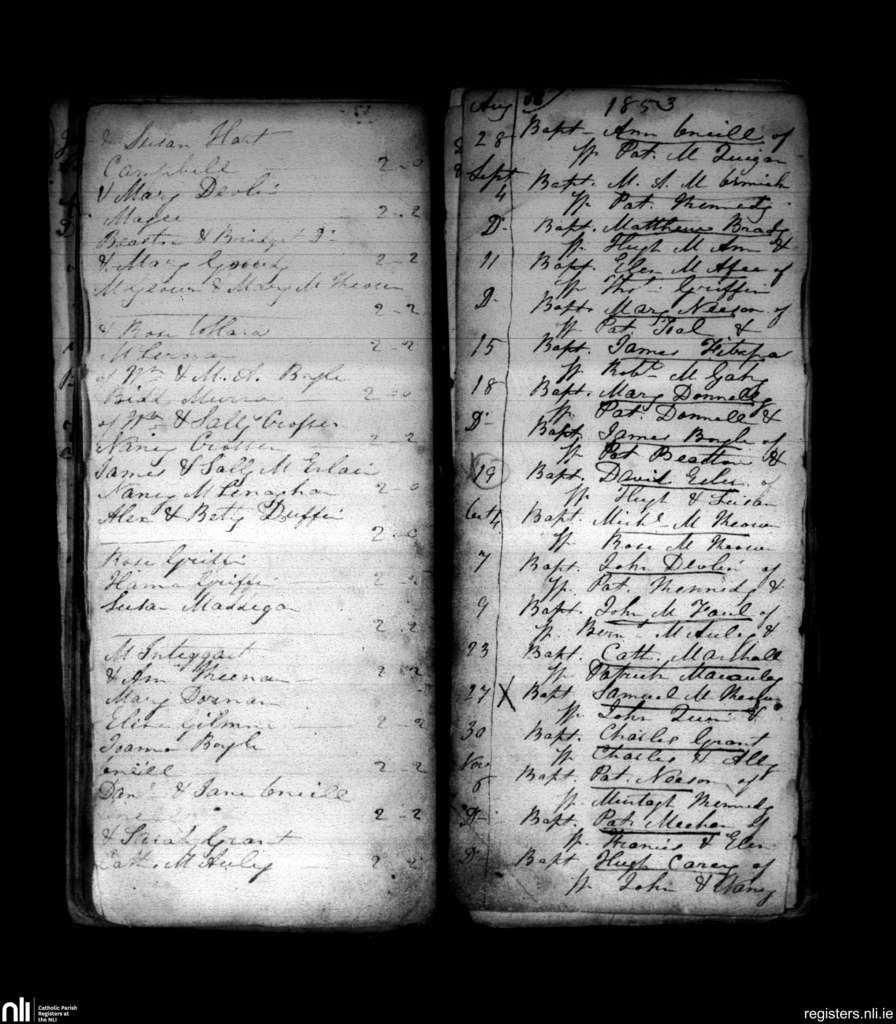 & Susan Hart
Campbell 2-0
& Mary Devlin
Magee 2-2
& Bridget Do
& Mary 2-2
& Mary M
2-2
& Rose O'Hara
2-2
of Wm & M. A. Boyle
2-0
of Wm & Sally Crosser
Nancy Crosser 2-2
James & Sally M Erlain
Nancy M Lenaghan 2-0
Alex & Betty Duffin
2-0
Rose Griffin
Hanna Griffin 2-2
Susan Maddegan
2-2
M Integgart
& Ann Keenan 2-2
Mary Dornan
Eliza Gilmore 2-2
Joanna Boyle
Oneill 2-2
Danl & Jane Oneill
2-2
& Sarah Grant
Cath. M Auly 2-2
Aug 1853
28 Bapt. Ann Oneill of
Sp. Pat. M Guigan
Sept 4 Bapt. M. A. M Cormick
Sp. Pat. Kennedy
Do Bapt. Matthew Brady
Sp. Hugh M Ann &
11 Bapt. Elen M Afee of
Sp. Thos. Griffin
D. Bapt. Mary Neeson of
Sp. Pat. Teal &
15 Bapt. James Fitzpa
Sp. Robt M Gaky
18 Bapt. Mary Donnelly
Sp. Pat. Donnell &
Do Bapt. James Boyle of
Sp. Pat Beatton &
19 Bapt. David of
Sp. Hugh & Susan
Oct 4 Bapt. Michl M Keown
Sp. Rose M Keown
7 Bapt. John Devlin of
Sp. Pat. Kennedy &
9 Bapt. John M Faul of
Sp. Bernd M Auley &
23 Bapt. Cath. Marshall
Sp. Patrick Macauley
27 X Bapt Samuel M Keown
Sp. John Quin &
30 Bapt. Charles Grant
Sp. Charles & Ally
Nov 6 Bapt. Pat. Neeson of
Sp. Murtagh Kennedy
D. Bapt. Pat. Meehan of
Sp. Francis & Elen
D. Bapt Hugh Carey of
Sp. John & Nancy
nli
Catholic Parish
Registers at
the NLI
registers.nli.ie